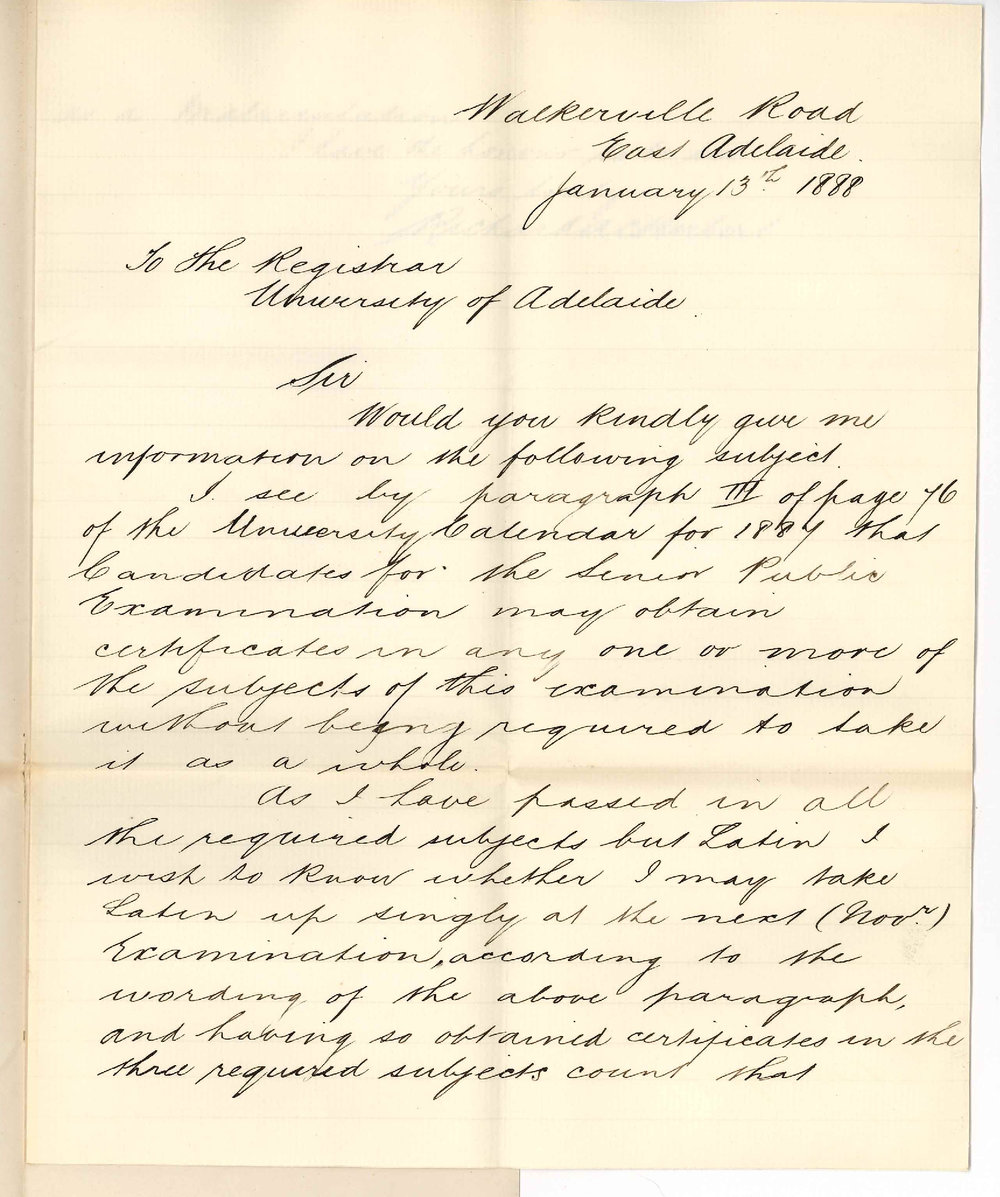 Walkerville Road
East Adelaide.
January 13th 1888
To the Registrar
University of Adelaide.
Sir
Would you kindly give me
information on the following subject.
I see by paragraph III of page 76
of the University Calendar for 1887 that
Candidates for the Senior Public
Examination may obtain
certificates in any one or more of
the subjects of this examination
without being required to take
it as a whole.
As I have passed in all
the required subjects but Latin I
wish to know whether I may take
Latin up singly at the next (Novr.)
Examination, according to the
wording of the above paragraph,
and having so obtained certificates in the
three required subjects count that